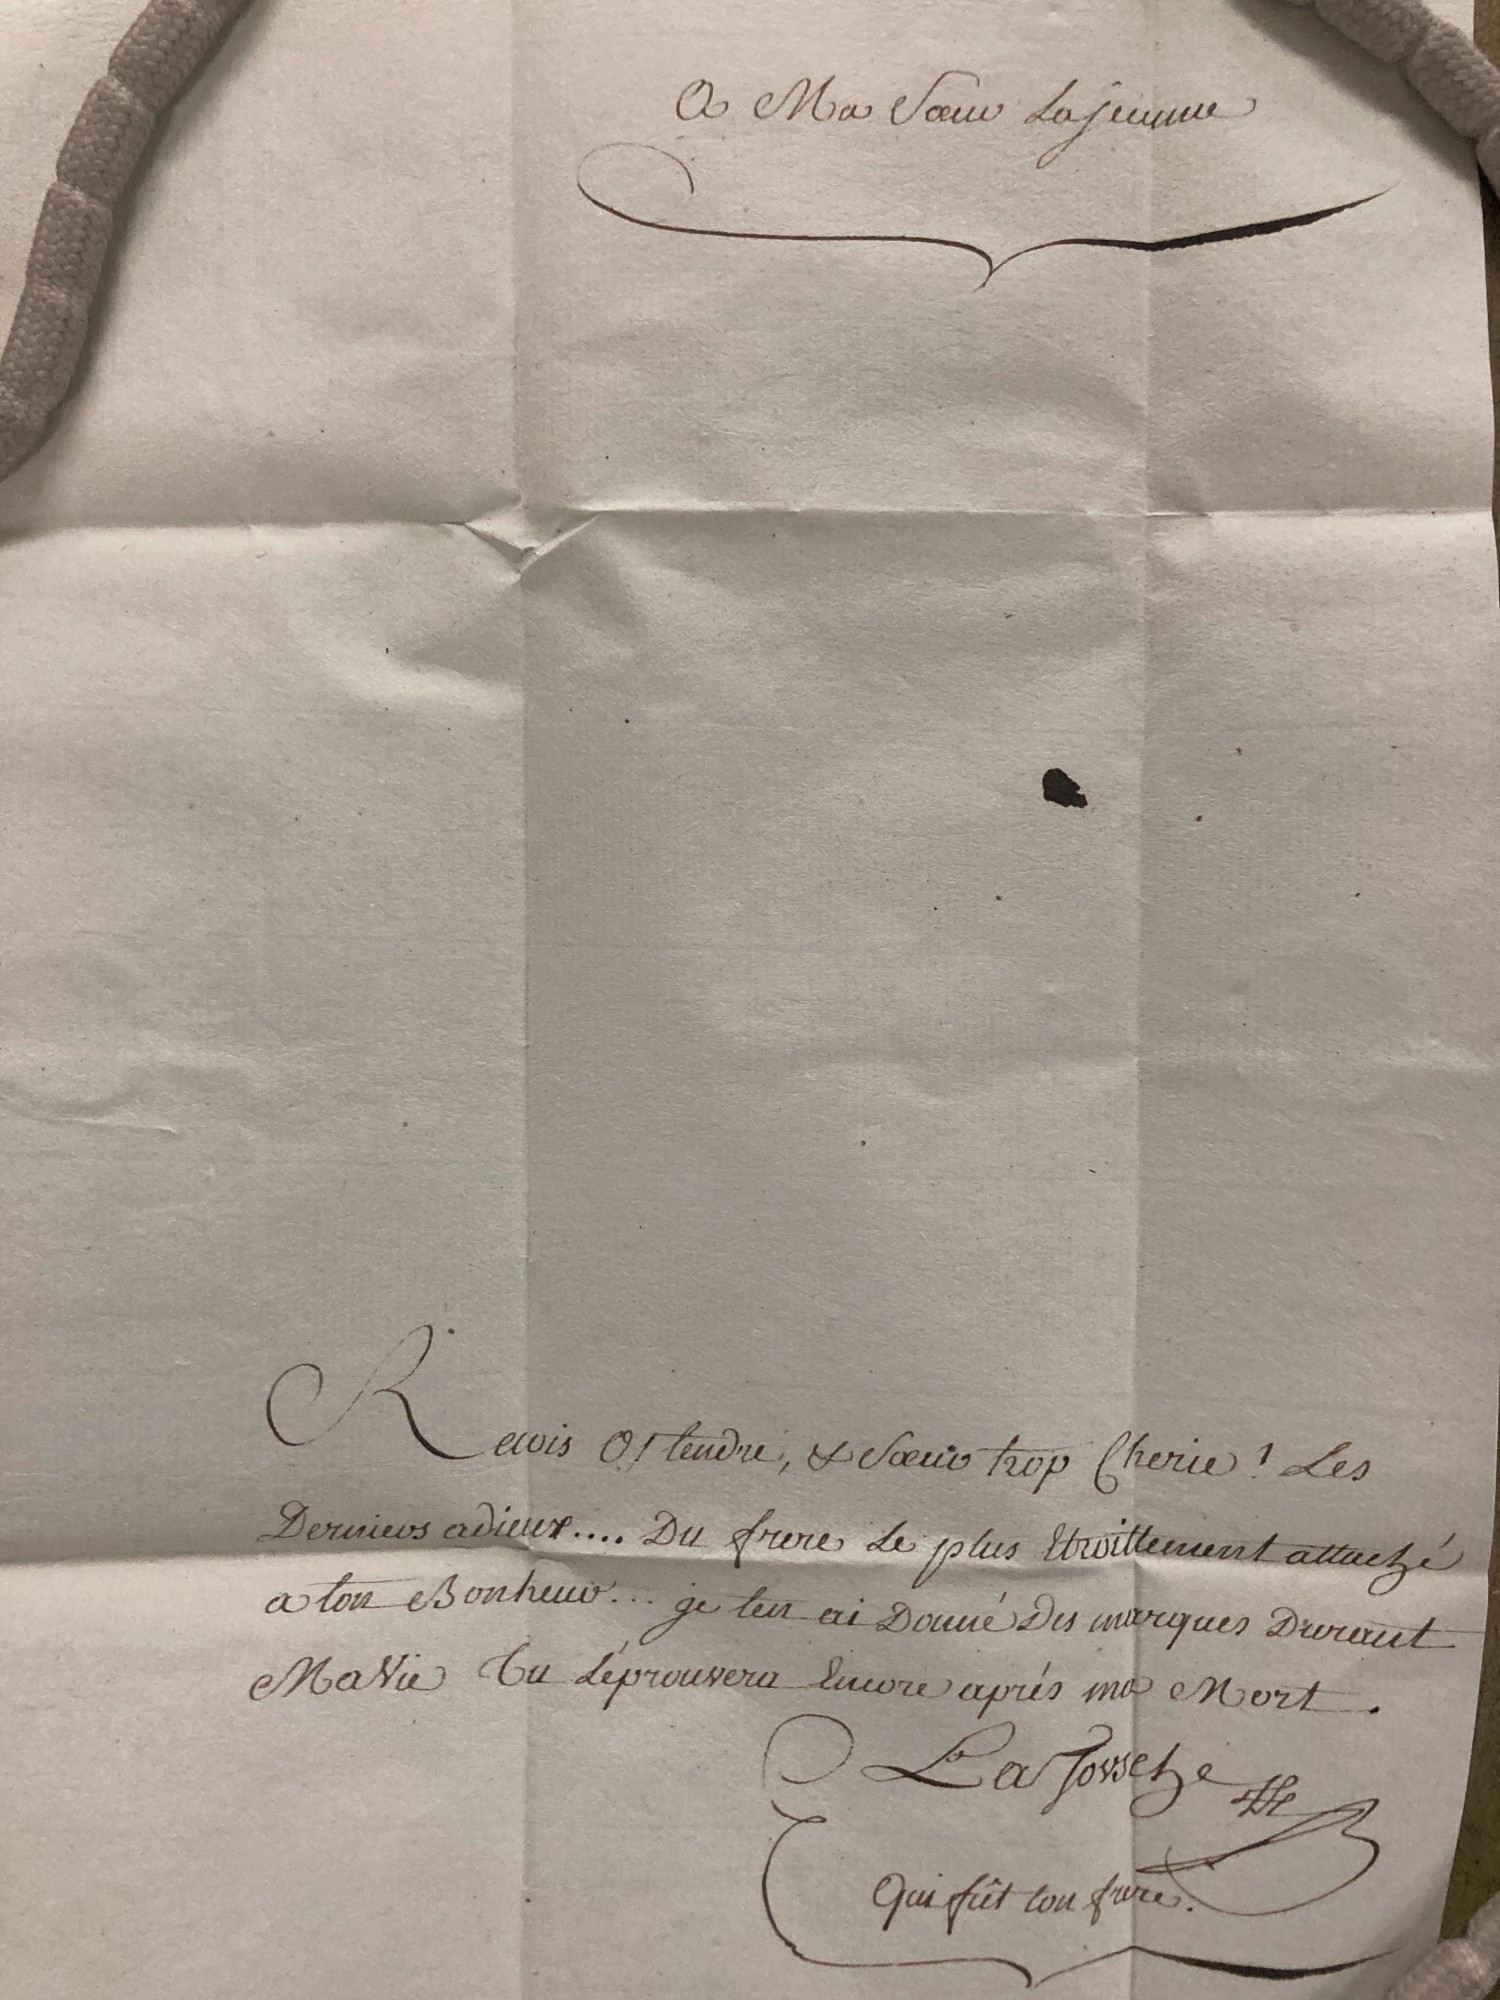 A Ma Sœur Lajeunne
Recois O! tendre, & Sœur trop Cherie! Les
Derniers adieux.... Du frere Le plus Etroittement attaché
a ton Bonheur... je t'en ai Donné Des marques Durant
Ma Vie Tu L'éprouvera Encore aprés ma Mort.
La
Qui fût ton frere.